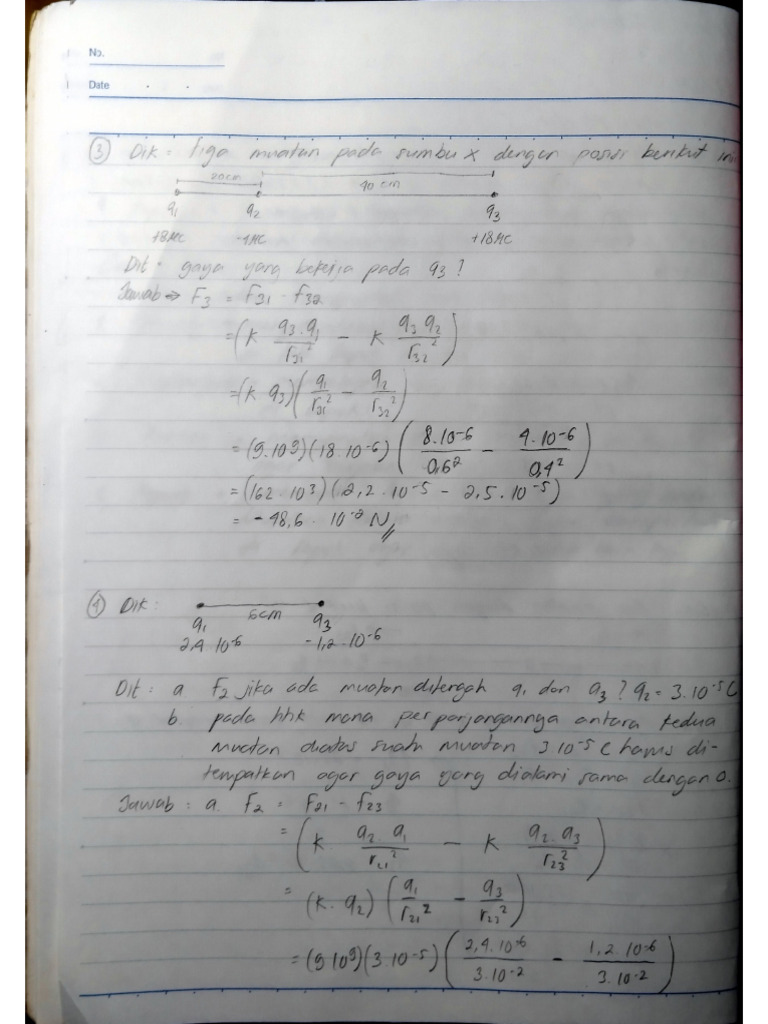 No.
Date
③ Dik = Tiga muatan pada sumbu x dengan posisi berikut ini
20cm 40 cm
q1 q2 q3
+8μC -4μC +18μC
Dit = gaya yang bekerja pada q3 ?
Jawab => F3 = F31 - F32
= (k q3.q1/r31² - k q3 q2/r32²)
= (k q3)(q1/r31² - q2/r32²)
= (9.10⁹)(18.10⁻⁶)(8.10⁻⁶/0,6² - 4.10⁻⁶/0,4²)
= (162.10³)(2,2.10⁻⁵ - 2,5.10⁻⁵)
= -48,6 . 10⁻² N //
④ Dik :
6cm
q1 q3
2,4.10⁻⁶ -1,2.10⁻⁶
Dit : a F2 jika ada muatan ditengah q1 dan q3 ? q2 = 3.10⁻⁵ C
b pada titik mana perpanjangannya antara kedua
muatan diatas suatu muatan 3 10⁻⁵ C harus di-
tempatkan agar gaya yang dialami sama dengan 0.
Jawab : a. F2 = F21 - F23
= (k. q2.q1/r21² - k q2.q3/r23²)
= (k.q2)(q1/r21² - q3/r23²)
= (9 10⁹)(3.10⁻⁵)(2,4.10⁻⁶/3.10⁻² - 1,2.10⁻⁶/3.10⁻²)